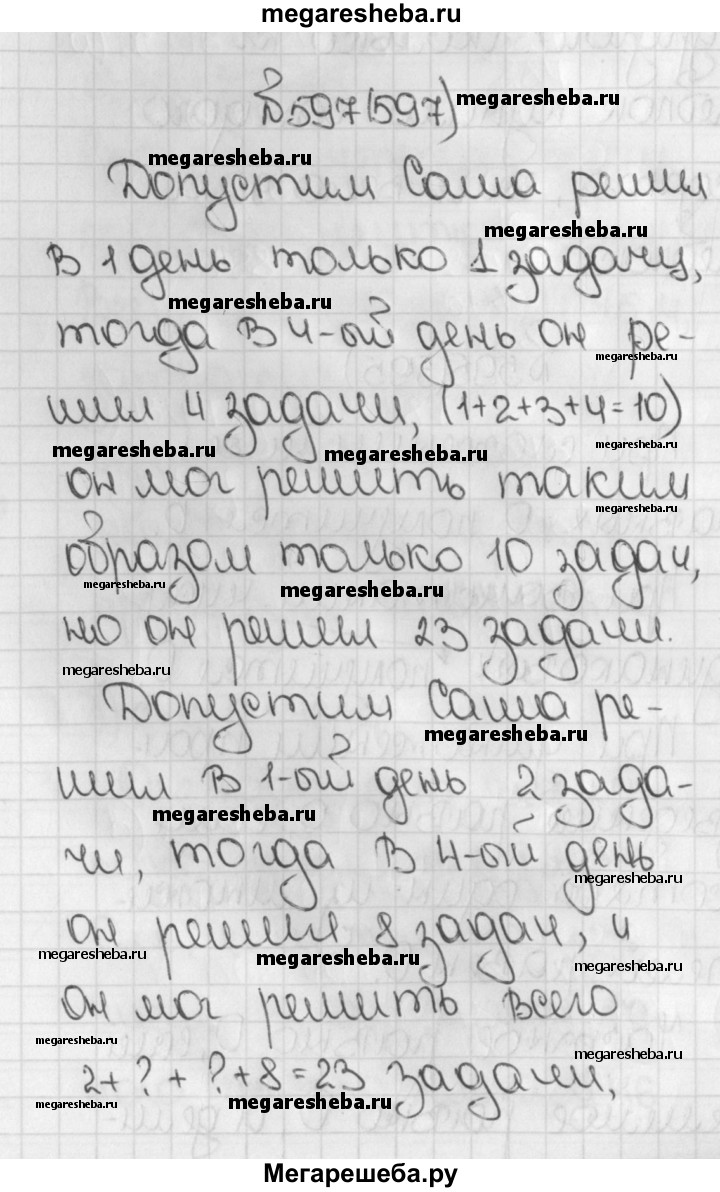 megaresheba.ru
№597(597) megaresheba.ru
megaresheba.ru
Допустим Саша решил
megaresheba.ru
в 1 день только 1 задачу,
megaresheba.ru
тогда в 4-ой день он ре-
megaresheba.ru
шил 4 задачи, (1+2+3+4=10)
megaresheba.ru megaresheba.ru megaresheba.ru
он мог решить таким
megaresheba.ru
образом только 10 задач,
megaresheba.ru megaresheba.ru
но он решил 23 задачи.
megaresheba.ru
Допустим Саша ре-
megaresheba.ru
шил в 1-ой день 2 зада-
megaresheba.ru
чи, тогда в 4-ой день
megaresheba.ru
он решил 8 задач, и
megaresheba.ru megaresheba.ru megaresheba.ru
он мог решить всего
megaresheba.ru megaresheba.ru
2+?+?+8=23 задачи,
megaresheba.ru megaresheba.ru
Мегарешеба.ру